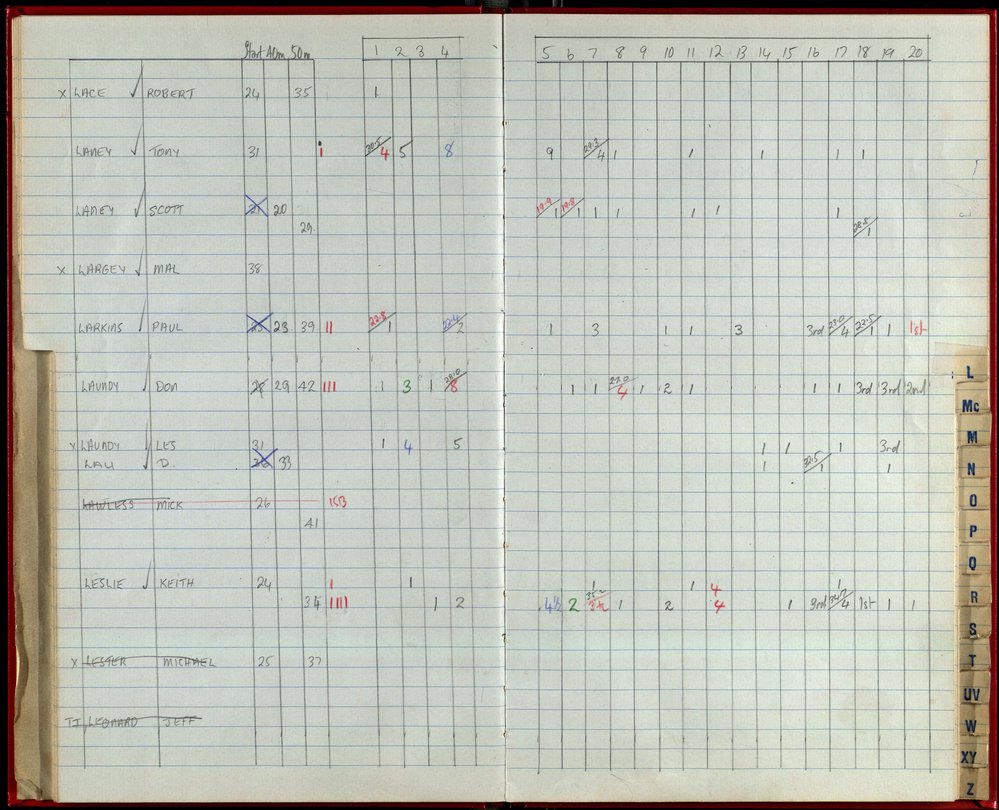 Start 40m 50m 1 2 3 4 5 6 7 8 9 10 11 12 13 14 15 16 17 18 19 20
x LACE ✓ ROBERT 24 35 1
LANEY ✓ TONY 31 1 30.5 4 5 8 9 29.2 4 1 1 1 1 1
LANEY ✓ SCOTT 21 20 19.9 1 19.8 1 1 1 1 1 1
29 20.5 1
x LARGEY ✓ MAL 38
LARKINS ✓ PAUL 23 39 11 22.8 1 22.4 2 1 3 1 1 3 3rd 23.0 4 22.5 1 1 1st
LAUNDY ✓ DON 28 29 42 111 1 3 1 28.0 8 1 1 27.0 4 1 2 1 1 1 3rd 3rd 2nd
x LAUNDY LES 31 1 4 5 1 1 1 3rd
LAU ✓ D. 33 1 32.5 1 1
LAWLESS MICK 26
41
LESLIE ✓ KEITH 24 1 1 1 1 4 1
34 1111 1 2 2 1 2 4 1 3rd 4 1st 1 1
x LESTER MICHAEL 25 37
LEONARD JEFF
L
Mc
M
N
O
P
Q
R
S
T
UV
W
XY
Z